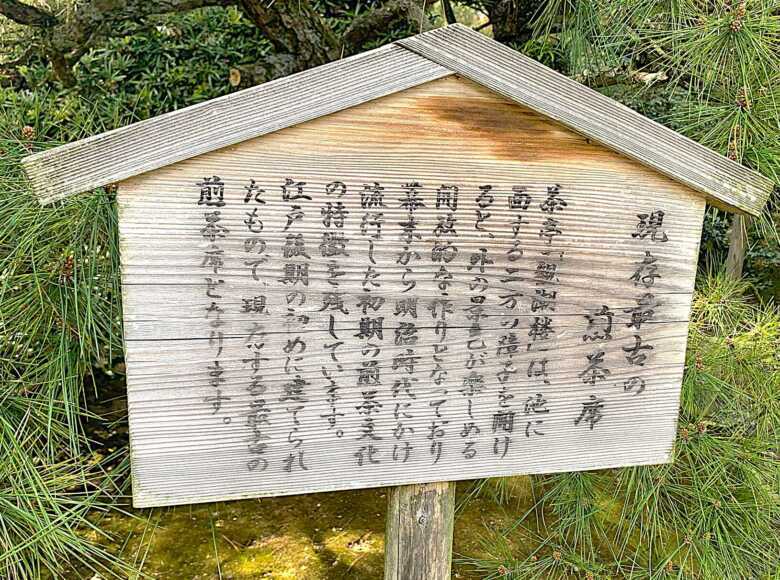 現存最古の
煎茶席
茶亭「観潮楼」は、池に
面する二方の障子を開け
ると、外の景色が楽しめる
開放的な作りとなっており
幕末から明治時代にかけ
流行した初期の煎茶文化
の特徴を残しています。
江戸後期の初めに建てられ
たもので、現存する最古の
煎茶席となります。